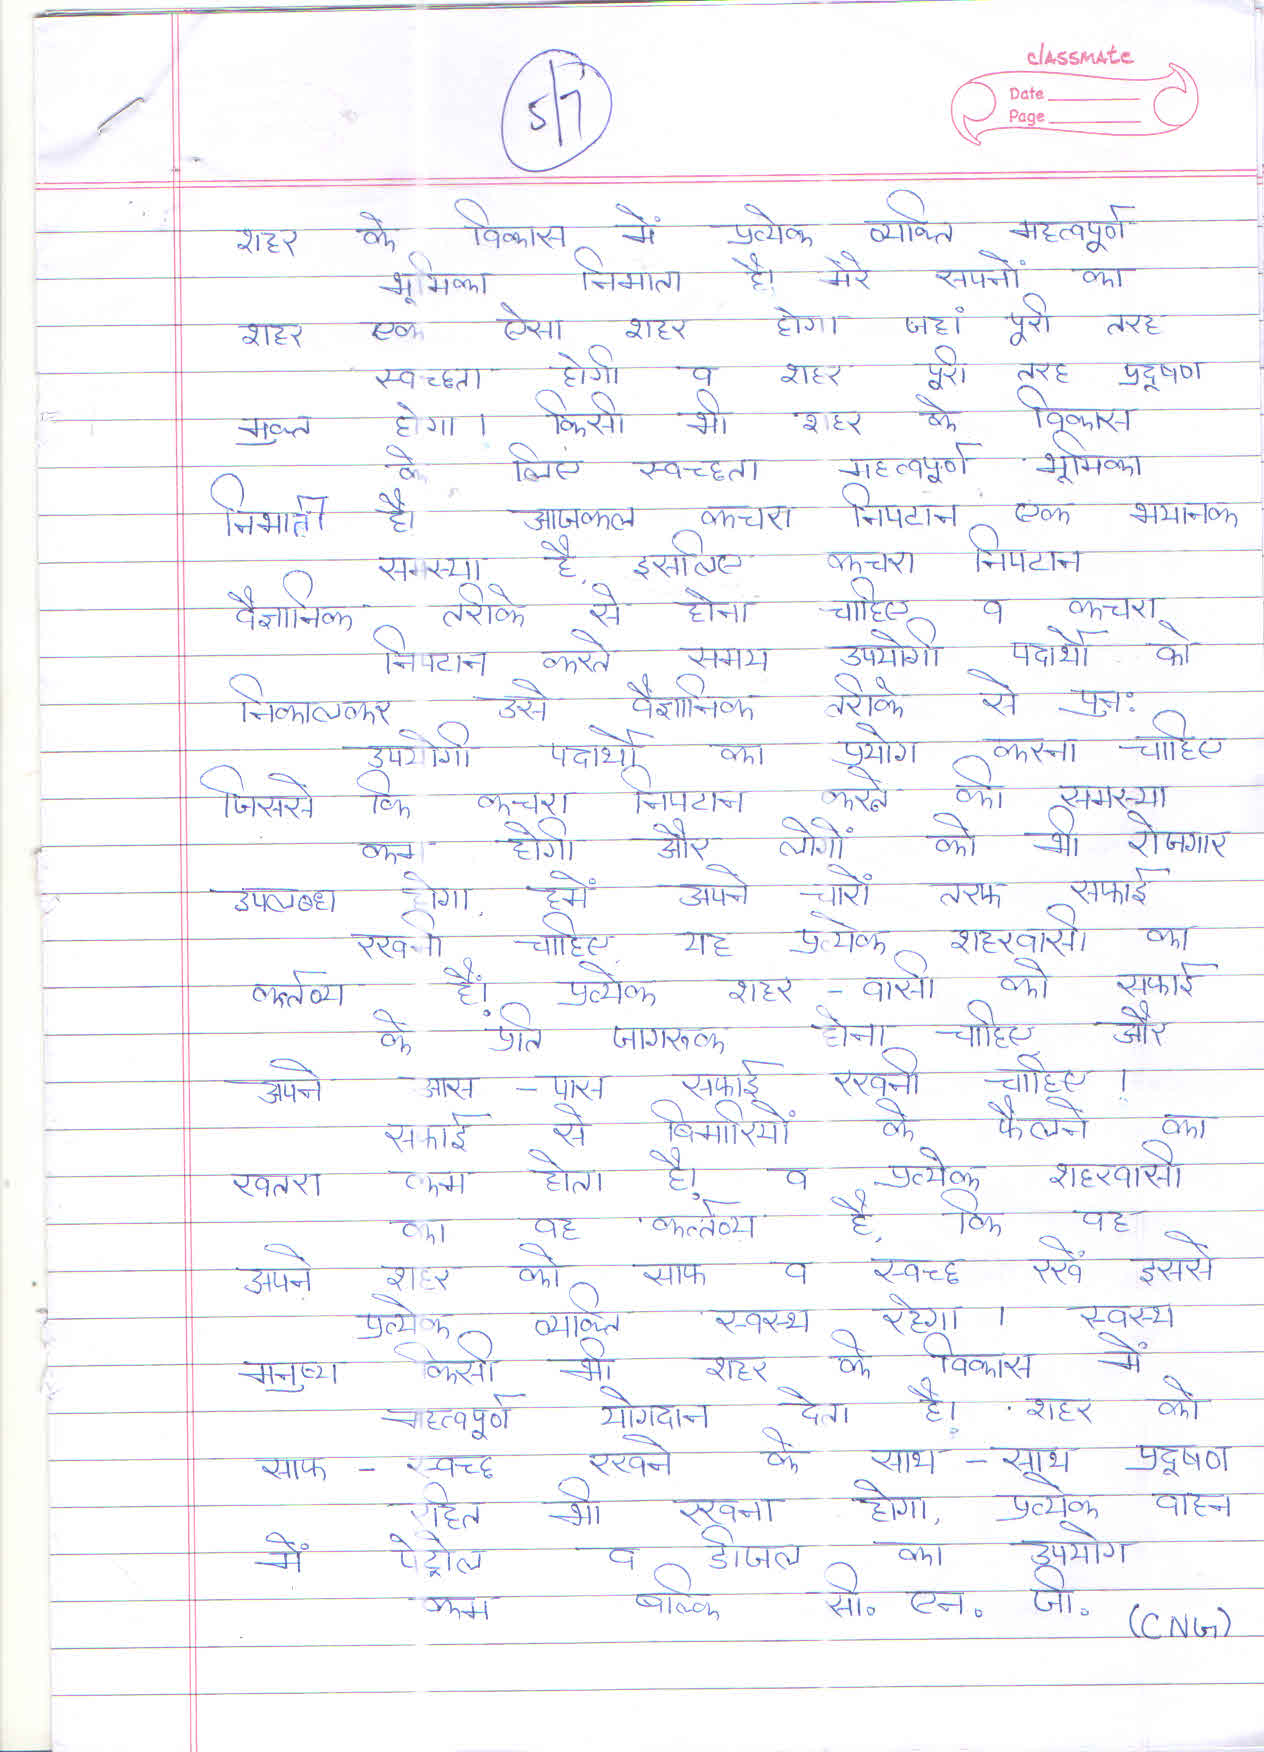 classmate
Date
Page
5/7
शहर के विकास में प्रत्येक व्यक्ति महत्वपूर्ण
भूमिका निभाता है। मेरे सपनों का
शहर एक ऐसा शहर होगा जहां पूरी तरह
स्वच्छता होगी व शहर पूरी तरह प्रदूषण
मुक्त होगा। किसी भी शहर के विकास
के लिए स्वच्छता महत्वपूर्ण भूमिका
निभाती है। आजकल कचरा निपटान एक भयानक
समस्या है, इसलिए कचरा निपटान
वैज्ञानिक तरीके से होना चाहिए व कचरा
निपटान करते समय उपयोगी पदार्थो को
निकालकर उसे वैज्ञानिक तरीके से पुन:
उपयोगी पदार्थो का प्रयोग करना चाहिए
जिससे कि कचरा निपटान करने की समस्या
कम होगी और लोगों को भी रोजगार
उपलब्ध होगा, हमें अपने चारों तरफ सफाई
रखनी चाहिए, यह प्रत्येक शहरवासी का
कर्तव्य हैं। प्रत्येक शहर - वासी को सफाई
के प्रति जागरूक होना चाहिए और
अपने आस - पास सफाई रखनी चाहिए।
सफाई से बिमारियों के फैलने का
खतरा कम होता है। व प्रत्येक शहरवासी
का यह कर्त्तव्य है, कि वह
अपने शहर को साफ व स्वच्छ रखें इससे
प्रत्येक व्यक्ति स्वस्थ रहेगा। स्वस्थ
मनुष्य किसी भी शहर के विकास में
महत्वपूर्ण योगदान देता है। शहर को
साफ - स्वच्छ रखने के साथ - साथ प्रदूषण
रहित भी रखना होगा, प्रत्येक वाहन
में पेट्रोल व डीजल का उपयोग
कम बल्कि सी. एन. जी. (CNG)